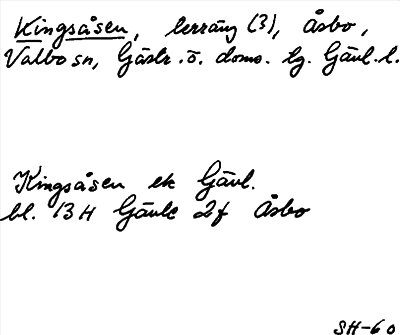 Kingsåsen, terräng (3), Åsbo,
Valbo sn, Gästr. ö. doms. tg. Gävl. l.
Kingsåsen ek Gävl.
bl. 13H Gävle 2f Åsbo
SH-60